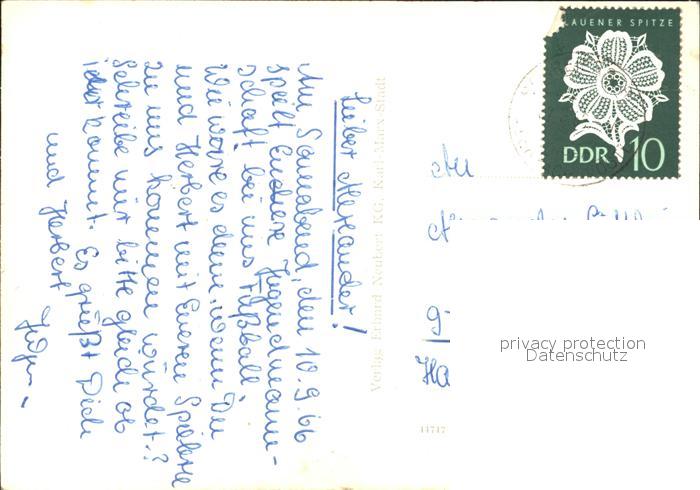 Lieber Alexander!
Am Sonnabend, den 10.9.66
spielt Euchere Jugendmann-
schaft bei uns Fußball.
Wie wäre es denn, wenn Du
und Herbert mit Eueren Spielern
zu uns kommen würdet?
Schreibe mir bitte gleich ob
ihr kommt. Es grüßt Dich
und Herbert
Verlag Erhard Neubert KG, Karl-Marx-Stadt
11717
LAUENER SPITZE
DDR 10
An
A
9
Ha
privacy protection
Datenschutz